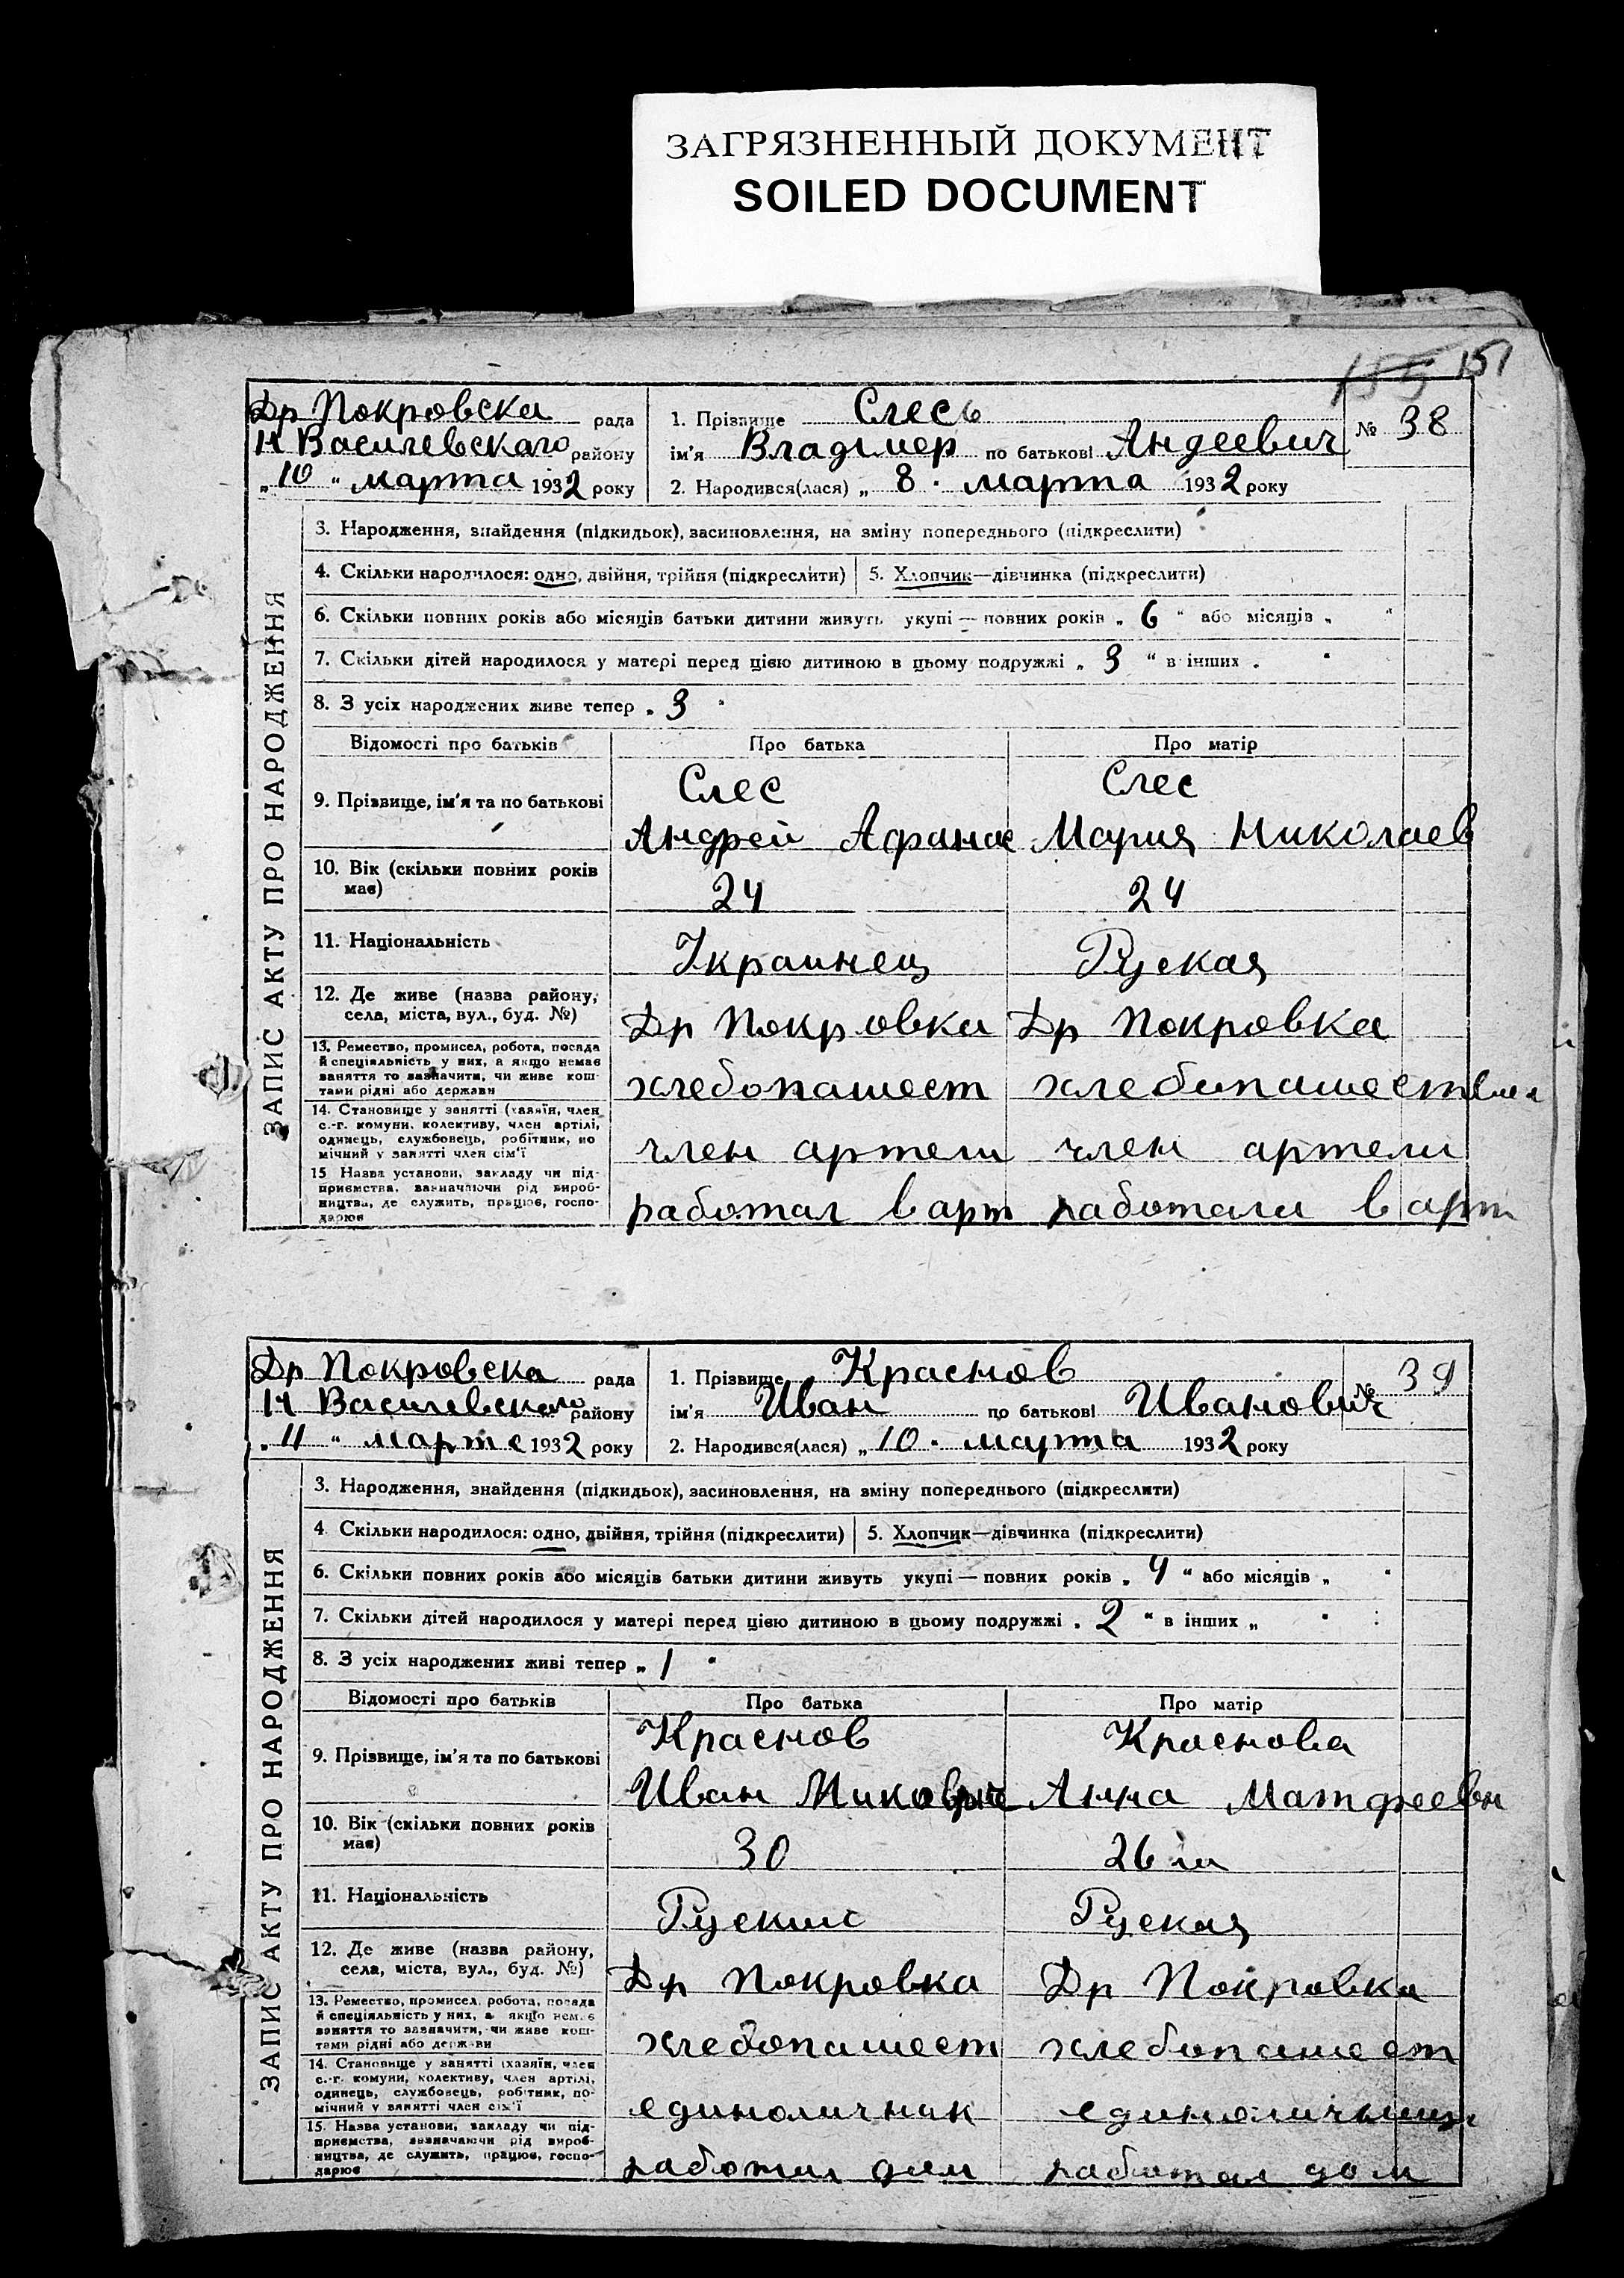 ЗАГРЯЗНЕННЫЙ ДОКУМЕНТ
SOILED DOCUMENT
155 151
Др Покровска рада
Н Василевскаго району
„10 “ марта 1932 року
1. Прізвище Слесь
ім'я Владимер по батькові Андеевич
№ 38
2. Народився(лася) „ 8 . марта 1932 року
ЗАПИС АКТУ ПРО НАРОДЖЕННЯ
3. Народження, знайдення (підкидьок), засиновлення, на зміну попереднього (підкреслити)
4. Скільки народилося: одно, двійня, трійня (підкреслити) 5. Хлопчик—дівчинка (підкреслити)
6. Скільки повних років або місяців батьки дитини живуть укупі — повних років „ 6 “ або місяців „ “
7. Скільки дітей народилося у матері перед цією дитиною в цьому подружжі „ 3 “ в інших „ “
8. З усіх народжених живе тепер „ 3 “
Відомості про батьків Про батька Про матір
9. Прізвище, ім'я та по батькові
Слес Слес
Андрей Афанас Мария Николаев
10. Вік (скільки повних років
має)
24 24
11. Національність
Украинец Руская
12. Де живе (назва району,
села, міста, вул., буд. №)
Др Покровка Др Покровка
13. Ремество, промисел, робота, посада
й спеціяльність у них, а якщо немає
заняття то зазначити, чи живе кош-
тами рідні або держави
хлебопашест хлебопашест
14. Становище у занятті (хазяїн, член
с.-г. комуни, колективу, член артілі,
одинець, службовець, робітник, по
мічний у занятті член сім'ї
член артели член артели
15 Назва установи, закладу чи під-
приємства, зазначаючи рід вироб-
ництва, де служить, працює, госпо-
дарює
работал в арт работали в арт
Др Покровска рада
Н Василевскаго району
„ 11 “ марта 1932 року
1. Прізвище Краснов
ім'я Иван по батькові Иванович
№ 39
2. Народився(лася) „ 10 . марта 1932 року
ЗАПИС АКТУ ПРО НАРОДЖЕННЯ
3. Народження, знайдення (підкидьок), засиновлення, на зміну попереднього (підкреслити)
4 Скільки народилося: одно, двійня, трійня (підкреслити) 5. Хлопчик—дівчинка (підкреслити)
6. Скільки повних років або місяців батьки дитини живуть укупі — повних років „ 4 “ або місяців „ “
7. Скільки дітей народилося у матері перед цією дитиною в цьому подружжі „ 2 “ в інших „ “
8. З усіх народжених живі тепер „ 1 “
Відомості про батьків Про батька Про матір
9. Прізвище, ім'я та по батькові
Краснов Краснова
Иван Анна Матфеевн
10. Вік (скільки повних років
має)
30 26
11. Національність
Руские Руская
12. Де живе (назва району,
села, міста, вул., буд. №)
Др Покровка Др Покровка
13. Ремество, промисел, робота, посада
й спеціяльність у них, а якщо немає
заняття то зазначити, чи живе кош-
тами рідні або держави
хлебопашест хлебопашест
14. Становище у занятті (хазяїн, член
с.-г. комуни, колективу, член артілі,
одинець, службовець, робітник, по-
мічний у занятті член сім'ї
единоличнак
15. Назва установи, закладу чи під-
приємства, зазначаючи рід вироб-
ництва, де служить, працює, госпо-
дарює
работал дом работал дом